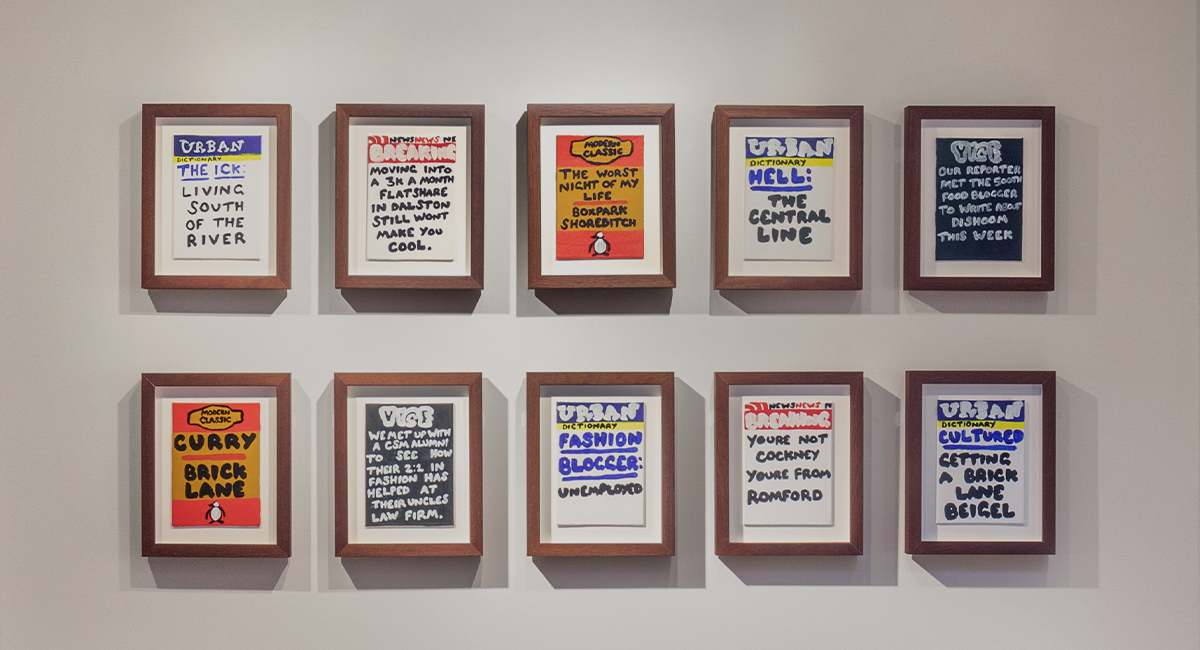 URBAN
DICTIONARY
THE ICK:
LIVING
SOUTH
OF THE
RIVER
NEWS NEWS NE
BREAKING
MOVING INTO
A 3K A MONTH
FLATSHARE
IN DALSTON
STILL WONT
MAKE YOU
COOL.
MODERN
CLASSIC
THE WORST
NIGHT OF MY
LIFE
BOXPARK
SHOREBITCH
URBAN
DICTIONARY
HELL:
THE
CENTRAL
LINE
VICE
OUR REPORTER
MET THE 500TH
FOOD BLOGGER
TO WRITE ABOUT
DISHOOM
THIS WEEK
MODERN
CLASSIC
CURRY
BRICK
LANE
VICE
WE MET UP WITH
A CSM ALUMNI
TO SEE HOW
THEIR 2:2 IN
FASHION HAS
HELPED AT
THEIR UNCLES
LAW FIRM.
URBAN
DICTIONARY
FASHION
BLOGGER:
UNEMPLOYED
NEWS NEWS N
BREAKING
YOURE NOT
COCKNEY
YOURE FROM
ROMFORD
URBAN
DICTIONARY
CULTURED
GETTING
A BRICK
LANE
BEIGEL